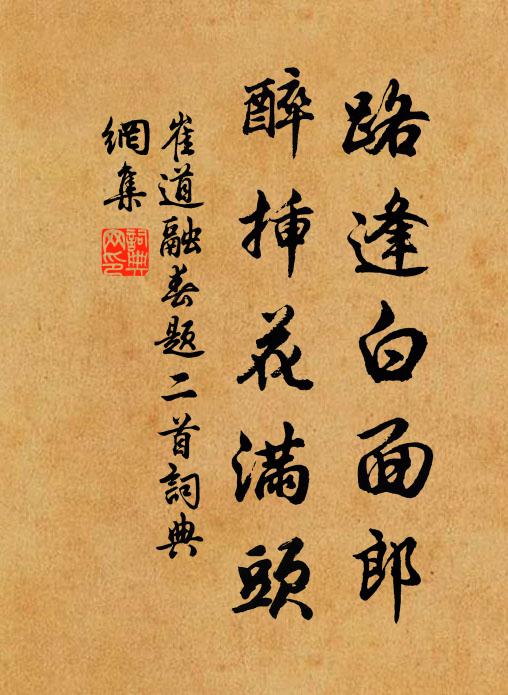 路逢白面郎
醉插花滿頭
崔道融春題二首詞典
網集
詞典網印